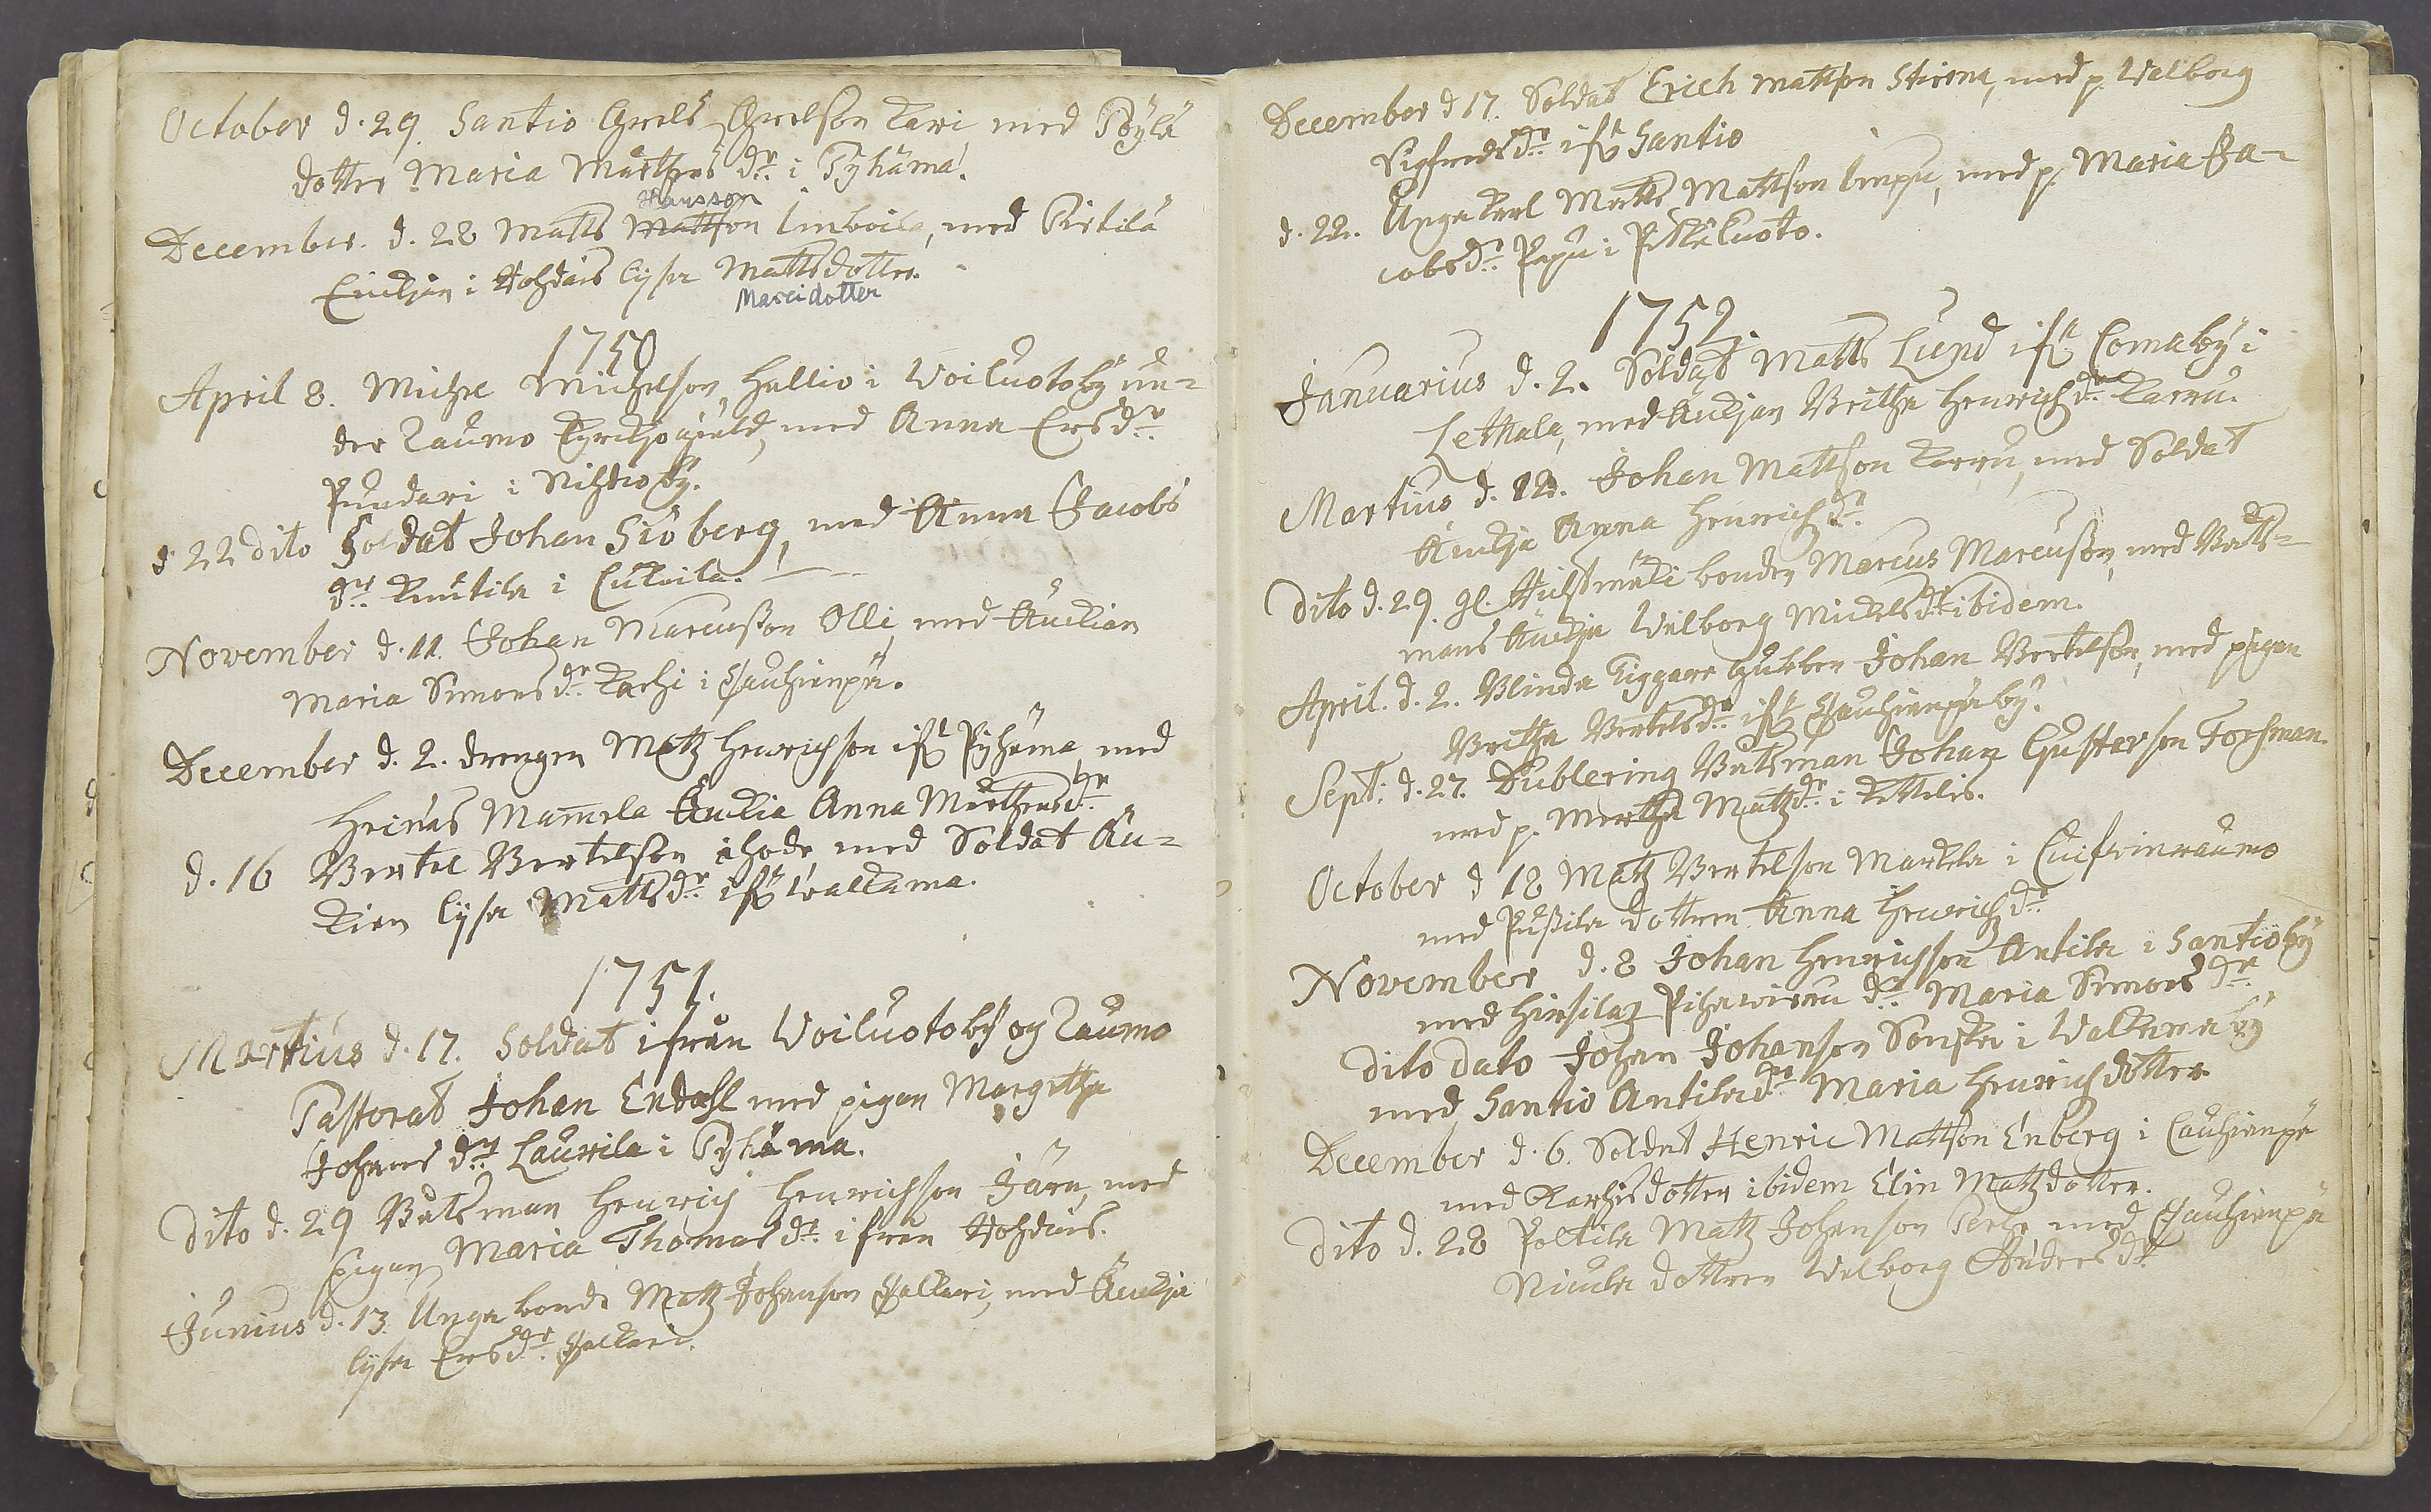 October d. 29. Santio Grels Grelson Kari med Pöylä
dotter Maria Mårtens dr. i Pyhäma.
Hansson
December. d. 28 Matts Mattson Imboila, med Pirtilä
Enckian i Hohdais Lisa Mattsdotter.
Marcidotter
1750
April 8. Michel Michelson, Hallio i Voiluotoby un=
der Raumo Kyrckiogiäld, med Anna Ersdr.
Pundari i Nihtioby.
d 22 dito Soldat Johan Siöberg, med Anna Jacobs
dr. Knutila i
November d. 11. Johan Marcusson Olli med Änckian
Maria Simonsdr. Karhi i Cauhianpä.
December d. 2. drengen Matz Henrichson ifr. Pyhäma med
Heinäs Mam̄ela Änckia Anna Mårtensdr.
d. 16 Bertel Bertelson ihode med Soldat Än=
kien Lisa Mattsdr. ifr. Walkama.
1751.
Martius d. 17. Soldat ifrån Voiluotoby og Raumo
Pastorat Johan Endahl med pigan Margetha
Johans dr. Laurila i Pyhäma.
Dito d. 29 Båtsman Henrich Henrichson Järn, med
pigan Maria Thomasdr. ifrån Hohdais.
Junius d. 13. Unga bonde Matz Johanson Jallari, med Änckja
Lisa Ersdr. Jallari.
December d 17. Soldat Erich Mattson Stierna, med p. Walborg
Sigfredsdr. ifr. Santio
d. 22. Unga Karl Matts Mattson Impu, med p. Maria Ja=
cobsdr. Papu i Pitkäluoto.
1752.
Januarius d. 2. Soldat Matts Lund ifr. Comaby i
Lethala, med Änckjan Britha Henrichsdr. Karru.
Martius d. 12. Johan Mattson Karru, med Soldat
Änckja Anna Henrichsdr.
Dito d. 29. gl. Hulsmäki bonden Marcus Marcusson, med Båts=
mans Änckja Walborg Mickelsdr. ibidem.
April. d. 2. Blinda Tiggare gubben Johan Bertelson, med pigan
Britha Bertelsdr. ifr. Cauhianpä by.
Sept: d. 27. Dublering Båtsman Johan Gustavson Forsman.
med p. Mertha Matzdr. i Kettelis.
October d 18 Matz Bertelson Markela i
med Pussila dottren Anna Henrichsdr
November d. 8 Johan Henrichson Antila i Santioby
med Hirsilax Pihawirru dr. Maria Simonsdr
dito dato Johan Johanson Sonska i Walkamaby
med Santio Antiladr Maria Henrichsdotter
December d. 6. Soldat Henric Mattson Enberg i Cauhianpä
med Karhisdotter ibidem Elin Matzdotter.
Dito d. 28 Poltila Matz Johanson Perho med Cauhianpä
Nicula dottren Walborg Andersdr.